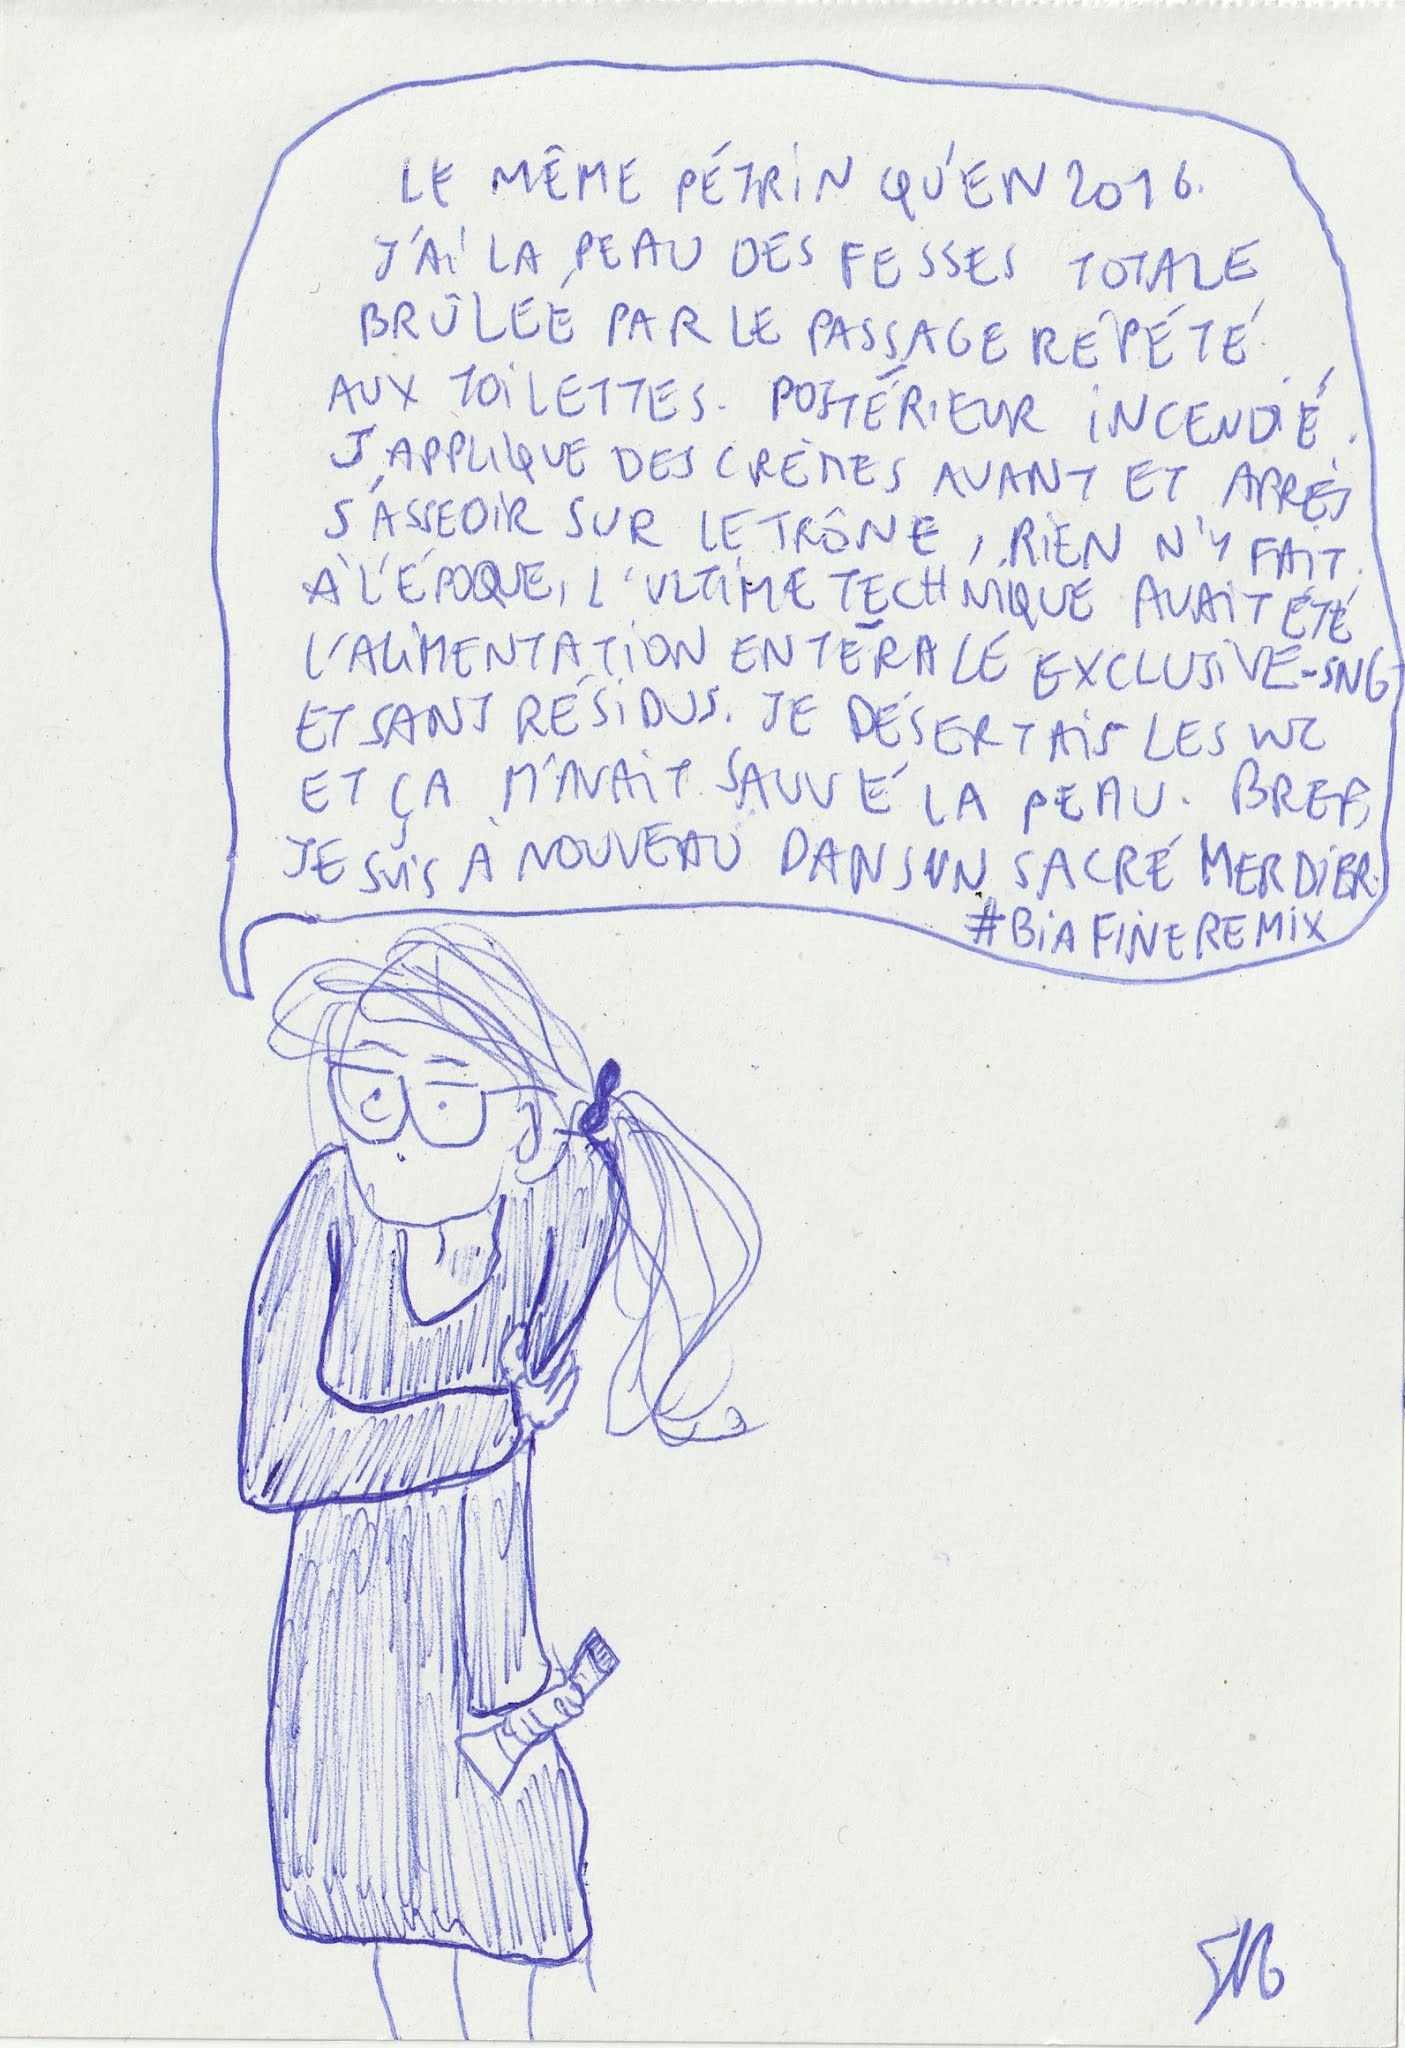 LE MÊME PÉTRIN QU'EN 2016.
J'AI LA PEAU DES FESSES TOTALE
BRÛLÉE PAR LE PASSAGE RÉPÉTÉ
AUX TOILETTES. POSTÉRIEUR INCENDIÉ.
J'APPLIQUE DES CRÈMES AVANT ET APRÈS
S'ASSEOIR SUR LE TRÔNE, RIEN N'Y FAIT.
À L'ÉPOQUE, L'ULTIME TECHNIQUE AVAIT ÉTÉ
L'ALIMENTATION ENTÉRALE EXCLUSIVE-SNG
ET SANS RÉSIDUS. JE DÉSERTAIS LES WC
ET ÇA M'AVAIT SAUVÉ LA PEAU. BREF,
JE SUIS À NOUVEAU DANS UN SACRÉ MERDIER.
#BIAFINEREMIX